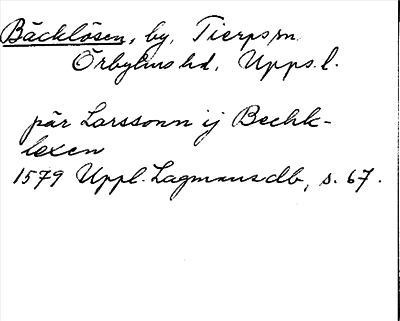 Bäcklösen, by, Tierps sn.
Örbyhus hd, Upps. l.
pär Larssonn ij Bechk-
lexen
1579 Uppl. Lagmansdb, s. 67.